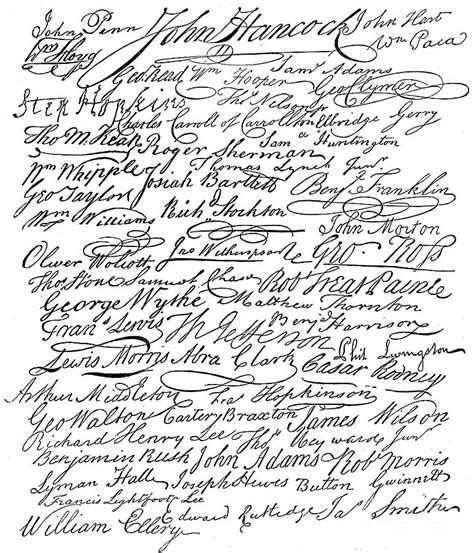 John Penn John Hancock John Hart
Wm Hooper Wm Paca
Geo Read Wm Hooper Saml Adams
Geo Clymer
Step Hopkins Thos Nelson jr
Charles Carroll of Carrollton Elbridge Gerry
Tho M:Kean Roger Sherman Saml Huntington
Wm Whipple Josiah Bartlett Thomas Lynch Junr.
Benj Franklin
Geo Taylor
Wm Williams Richd Stockton John Morton
Oliver Wolcott Jno Witherspoon Geo. Ross
Thos Stone Samuel Chase Robt Treat Paine
George Wythe Matthew Thornton
Frans. Lewis Th Jefferson Benj Harrison
Lewis Morris Abra Clark Phil. Livingston
Cæsar Rodney
Arthur Middleton Fras Hopkinson
Geo Walton Carter Braxton James Wilson
Richard Henry Lee Thos Heyward Junr
Benjamin Rush John Adams Robt Morris
Lyman Hall Joseph Hewes Button Gwinnett
Francis Lightfoot Lee
William Ellery Edward Rutledge Jas Smith